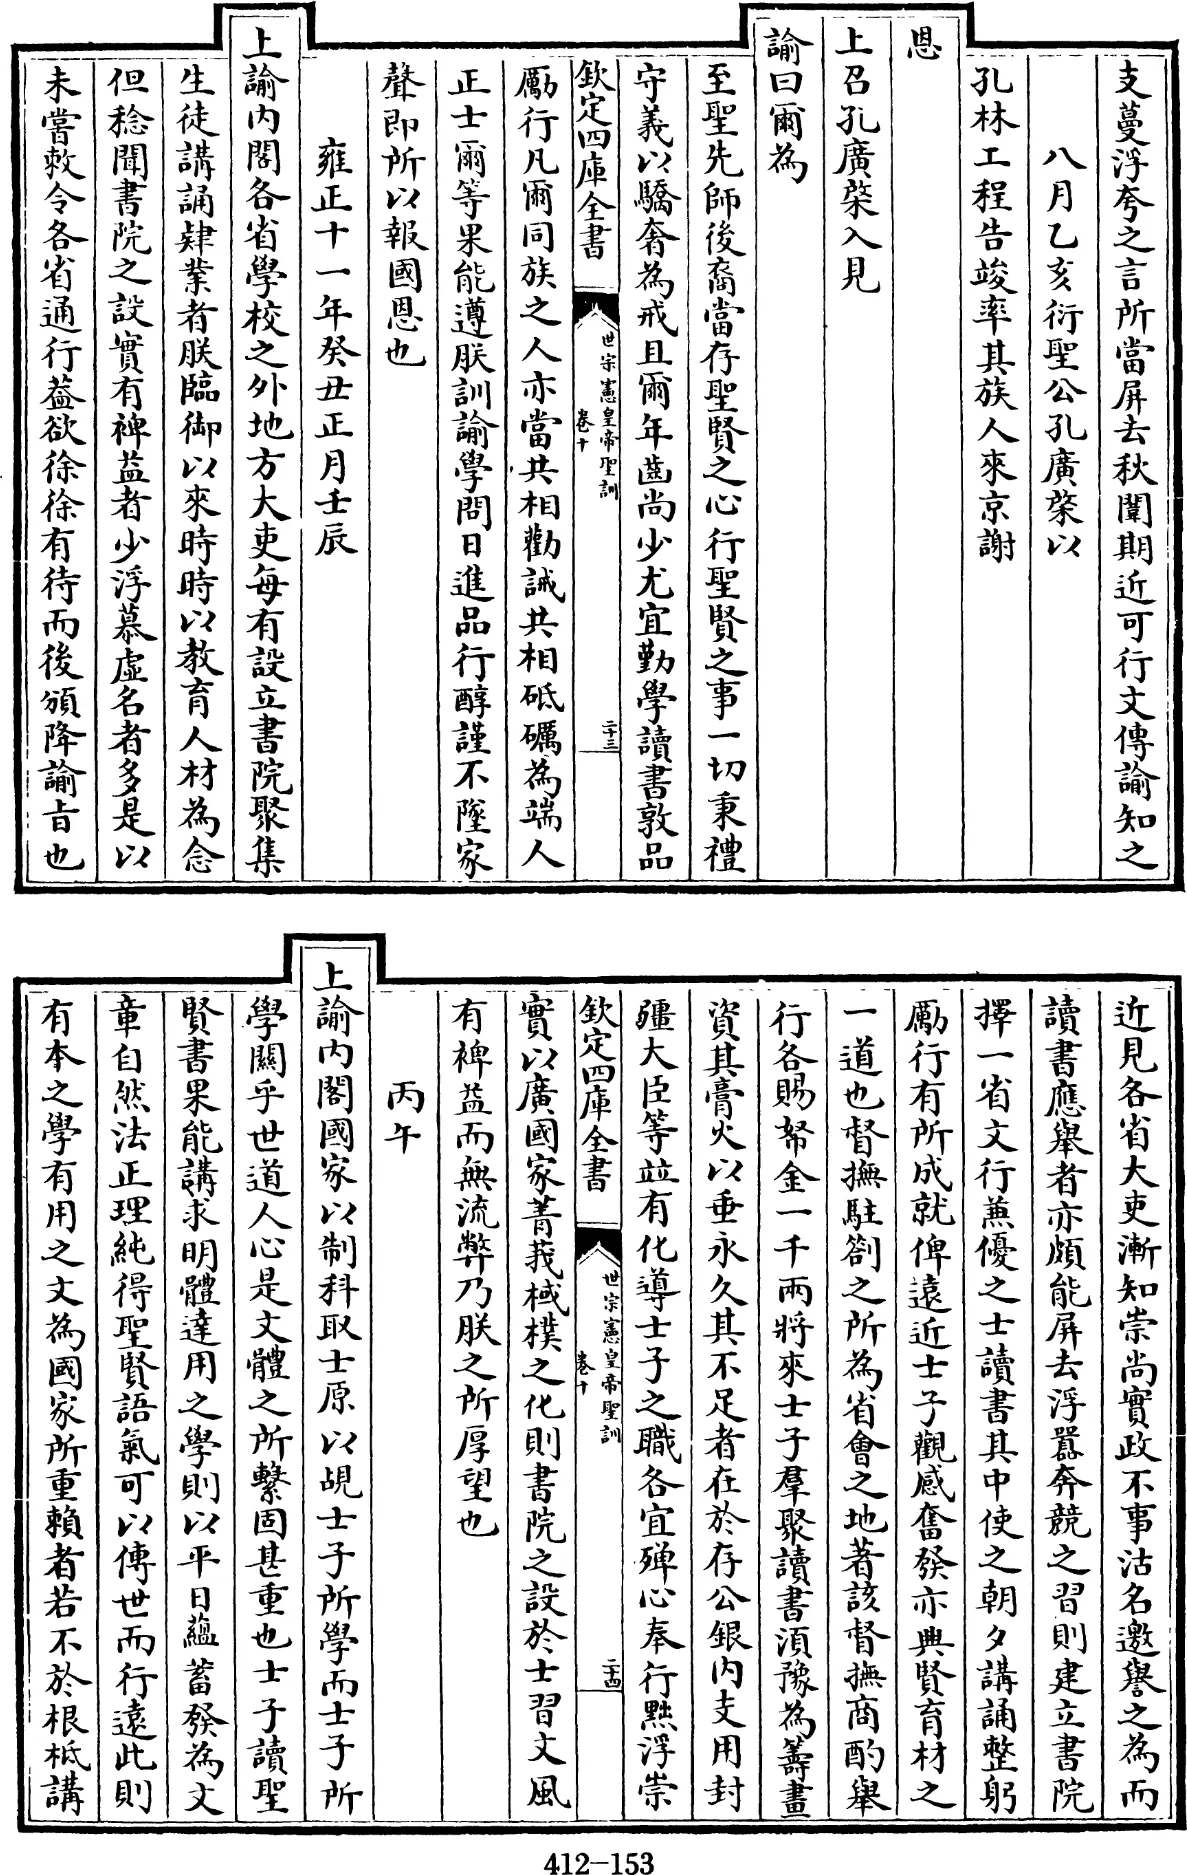 支蔓浮夸之言所當屏去秋闈期近可行文傳諭知之
八月乙亥衍聖公孔廣棨以
孔林工程告竣率其族人來京謝
恩
上召孔廣棨入見
諭曰爾為
至聖先師後裔當存聖賢之心行聖賢之事一切秉禮
守義以驕奢為戒且爾年齒尚少尤宜勤學讀書敦品
欽定四庫全書
世宗憲皇帝聖訓
卷十
二十三
勵行凡爾同族之人亦當共相勸誡共相砥礪為端人
正士爾等果能遵朕訓諭學問日進品行醇謹不墜家
聲即所以報國恩也
雍正十一年癸丑正月壬辰
上諭內閣各省學校之外地方大吏每有設立書院聚集
生徒講誦肄業者朕臨御以來時時以教育人材為念
但稔聞書院之設實有裨益者少浮慕虛名者多是以
未嘗敕令各省通行葢欲徐徐有待而後頒降諭旨也
近見各省大吏漸知崇尚實政不事沽名邀譽之為而
讀書應舉者亦頗能屏去浮囂奔競之習則建立書院
擇一省文行兼優之士讀書其中使之朝夕講誦整躬
勵行有所成就俾遠近士子觀感奮發亦興賢育材之
一道也督撫駐劄之所為省會之地著該督撫商酌舉
行各賜帑金一千兩將來士子羣聚讀書須豫為籌畫
資其膏火以垂永久其不足者在於存公銀內支用封
疆大臣等竝有化導士子之職各宜殫心奉行黜浮崇
欽定四庫全書
世宗憲皇帝聖訓
卷十
二十四
實以廣國家菁莪棫樸之化則書院之設於士習文風
有裨益而無流弊乃朕之所厚望也
丙午
上諭內閣國家以制科取士原以覘士子所學而士子所
學關乎世道人心是文體之所繫固甚重也士子讀聖
賢書果能講求明體達用之學則以平日蘊蓄發為文
章自然法正理純得聖賢語氣可以傳世而行遠此則
有本之學有用之文為國家所重賴者若不於根柢講
412-153